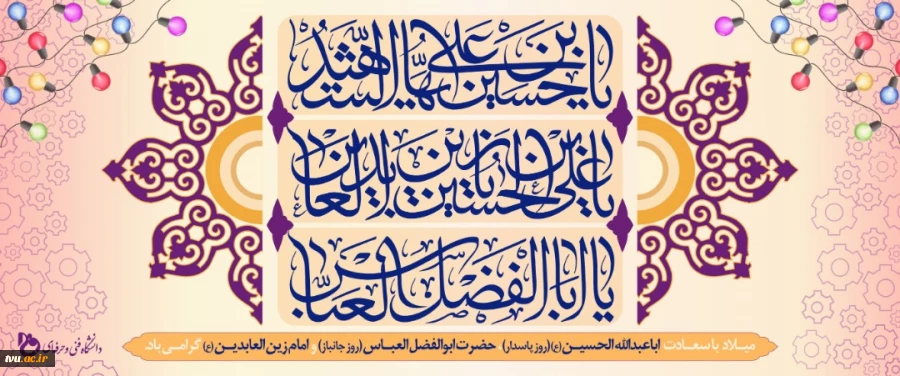 یا حسین بن علی ایها الشهید
یا علی بن الحسین یا زین العابدین
یا اباالفضل العباس
میلاد با سعادت اباعبدالله الحسین (ع) (روز پاسدار) حضرت ابوالفضل العباس (روز جانباز) و امام زین العابدین (ع) گرامی باد
دانشگاه فنی و حرفه‌ای
tvu.ac.ir